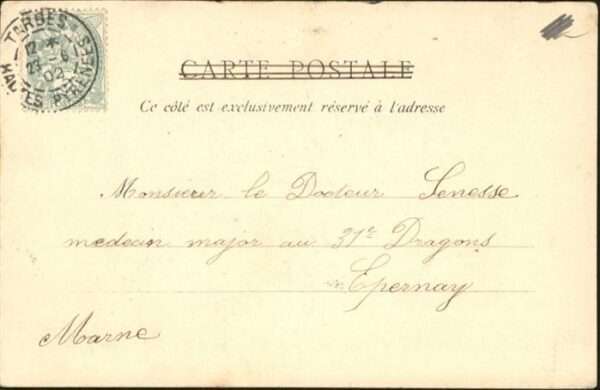 TARBES
12 *
23 - 6
02
HAUTES PYRENEES
CARTE POSTALE
Ce côté est exclusivement réservé à l'adresse
Monsieur le Docteur Senesse
medecin major au 31e Dragons
Epernay
Marne